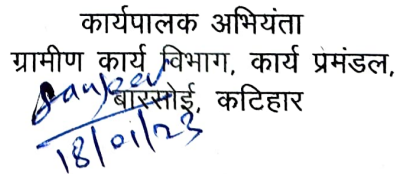 कार्यपालक अभियंता
ग्रामीण कार्य विभाग, कार्य प्रमंडल,
बारसोई, कटिहार
18/01/23